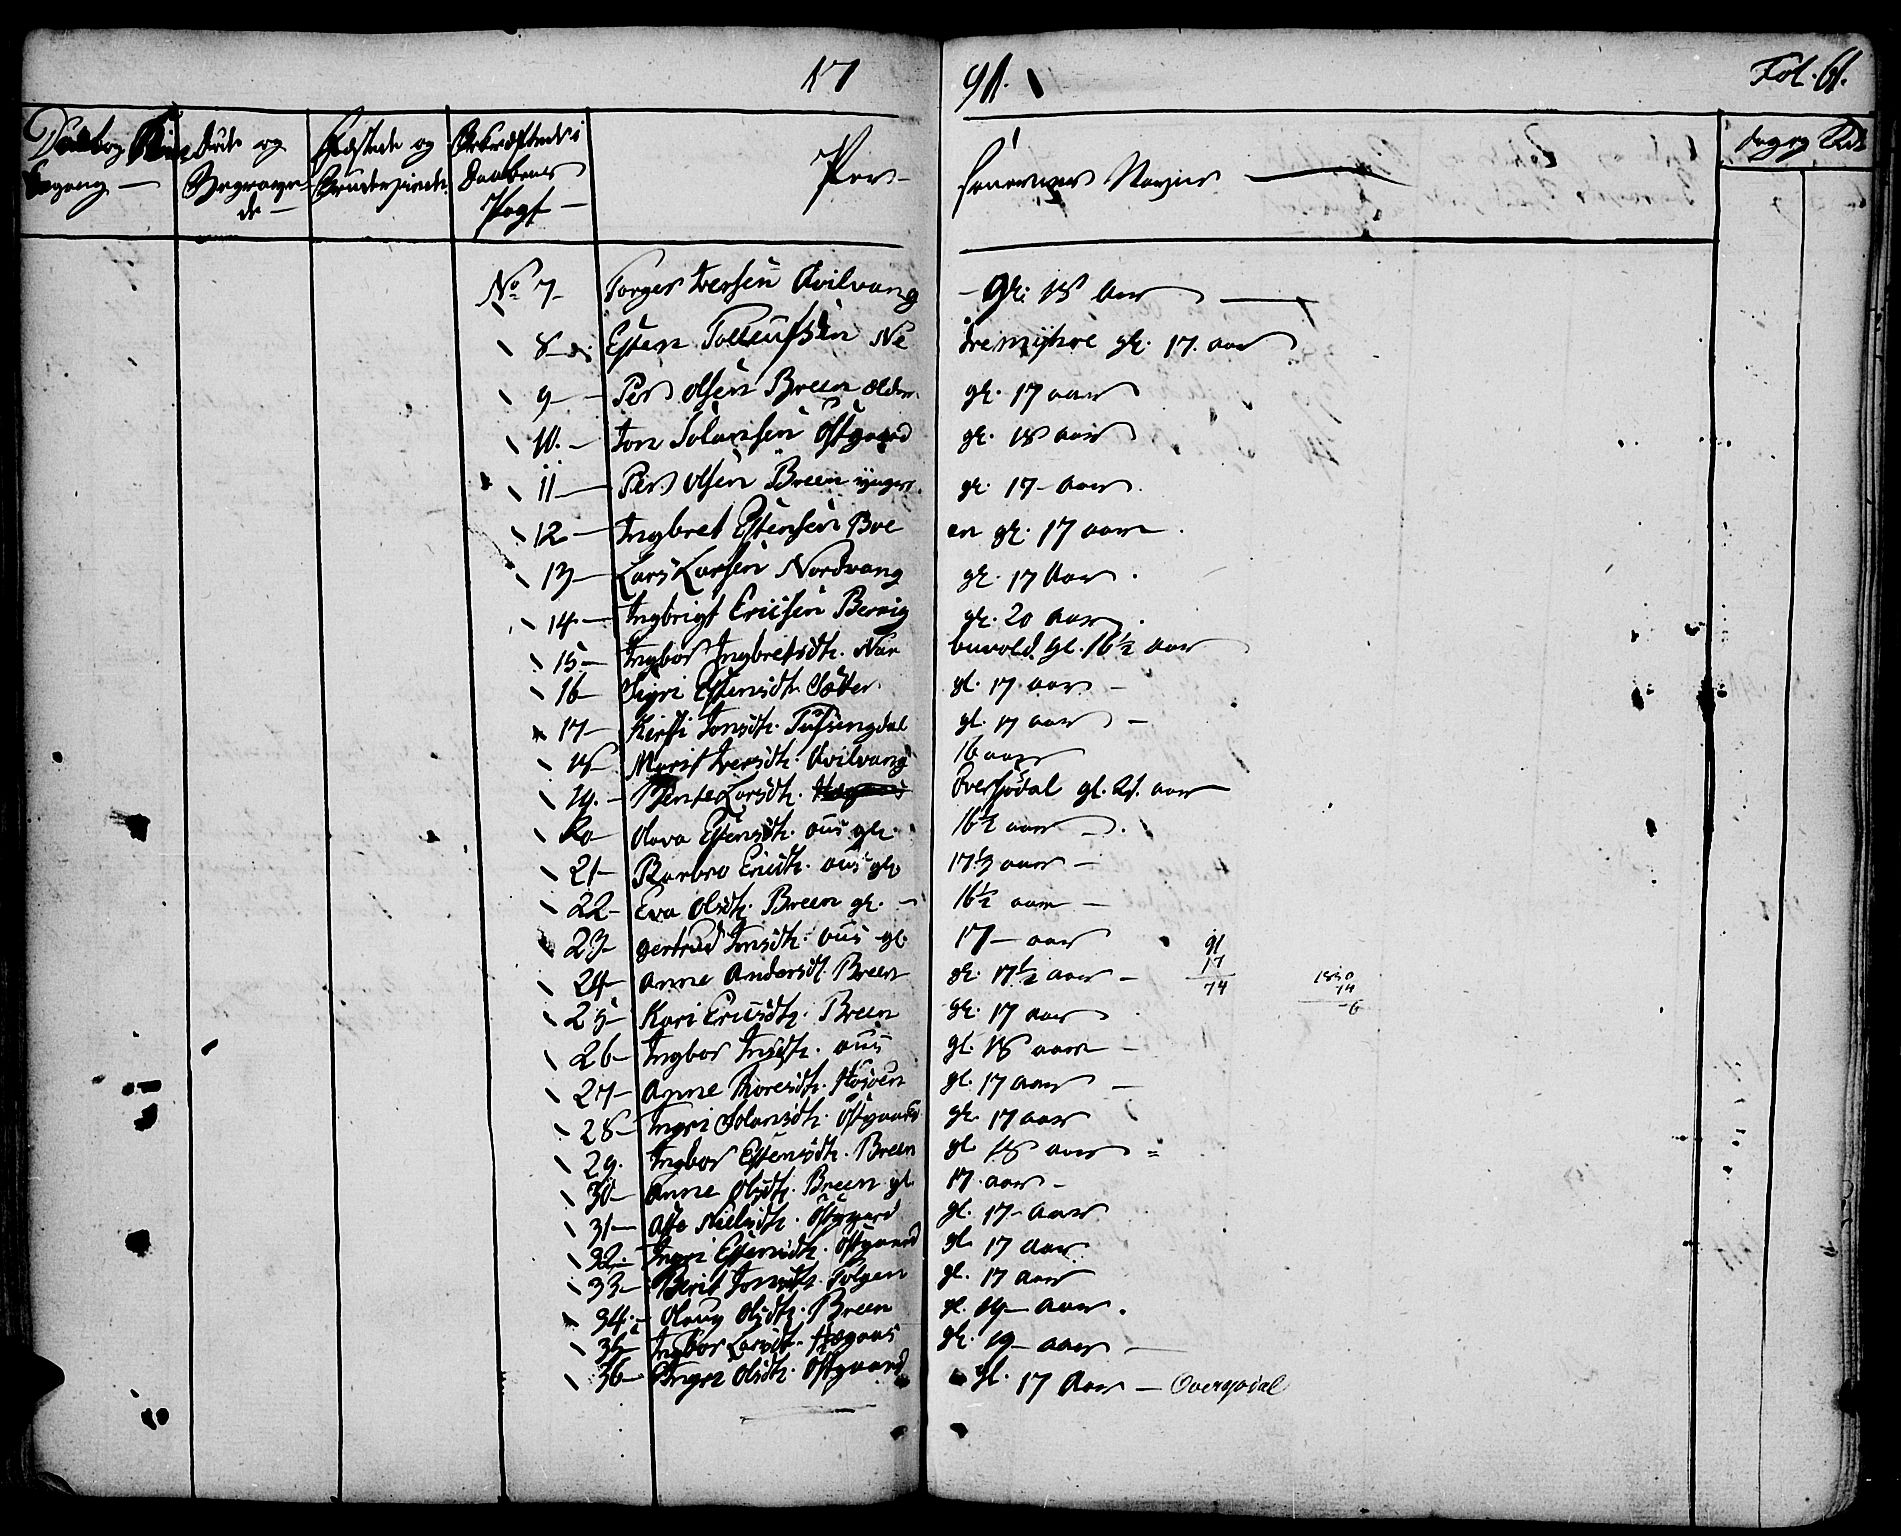 1791. Fol. 61.
Daab og Kirkegang —
Døde og Begravede —
Fæstede og Brudeviede
Bekræftede i Daabens Pagt —
Personernes Navne —
No 7 — Torger Iversen Qvilvang — gl: 18 Aar —
8 — Esten Tollefsen Nedremyhre gl. 17. aar
9 — Per Olsen Breen ældre gl. 17 aar
10. — Jon Solansen Østgaard gl. 18 aar
11 — Per Olsen Breen yngere gl. 17 — Aar
12 — Ingbret Estensen Broen gl. 17 aar
13 — Lars Larsen Nordvang gl. 17 Aar.
14 — Ingbrigt Ericsen Bervig gl. 20 Aar.
15 — Ingbor Ingbretsdtr. Narbuvold gl. 16 1/2 aar
16 — Sigri Estensdtr. Sætter gl. 17 aar —
17 — Kirsti Jonsdtr. Tufsingdal gl. 17 aar —
18 — Marit Iversdtr. Qvilvang 16 aar
19. — Bente Larsdtr. Øversjødal gl. 21. aar
20 — Olava Estensdtr. aus gl. 16 1/2 aar —.
21 — Barbro Ericsdtr. aus gl. 17 1/2 aar —
22 — Eva Olsdtr. Breen gl. — 16 1/2 aar —
23 — Gertrud Jonsdtr. aus gl. 17 — aar
24 — Anne Andersdt. Breen gl. 17 1/2 aar —
91
17
74
1850
74
6
25 — Kari Ericsdtr. Breen gl. 17 aar
26 — Ingbor Jnsdtr. aus gl. 18 aar —
27 — Anne Toresdtr. Høyoen gl. 17 aar —
28 — Ingri Solansdtr. Østgaard gl. 17 aar
29. Ingbor Estensdtr. Breen gl. 18 aar =
30 — Anne Olsdtr. Breen gl. 17. aar —
31 — Nielsdtr. Østgaard gl. 17 — Aar
32 — Ingri Estensdtr. Østgaard gl. 17 Aar
33 — Berit Jonsdtr. Tolgen gl. 17 aar
34. — Olaug Olsdtr. Breen gl. 19 — Aar.
35 — Ingbor Larsdtr. Hogaas gl. 19 — aar —
36 — Olsdtr. Østgaard gl. 17 Aar — Oversjodal